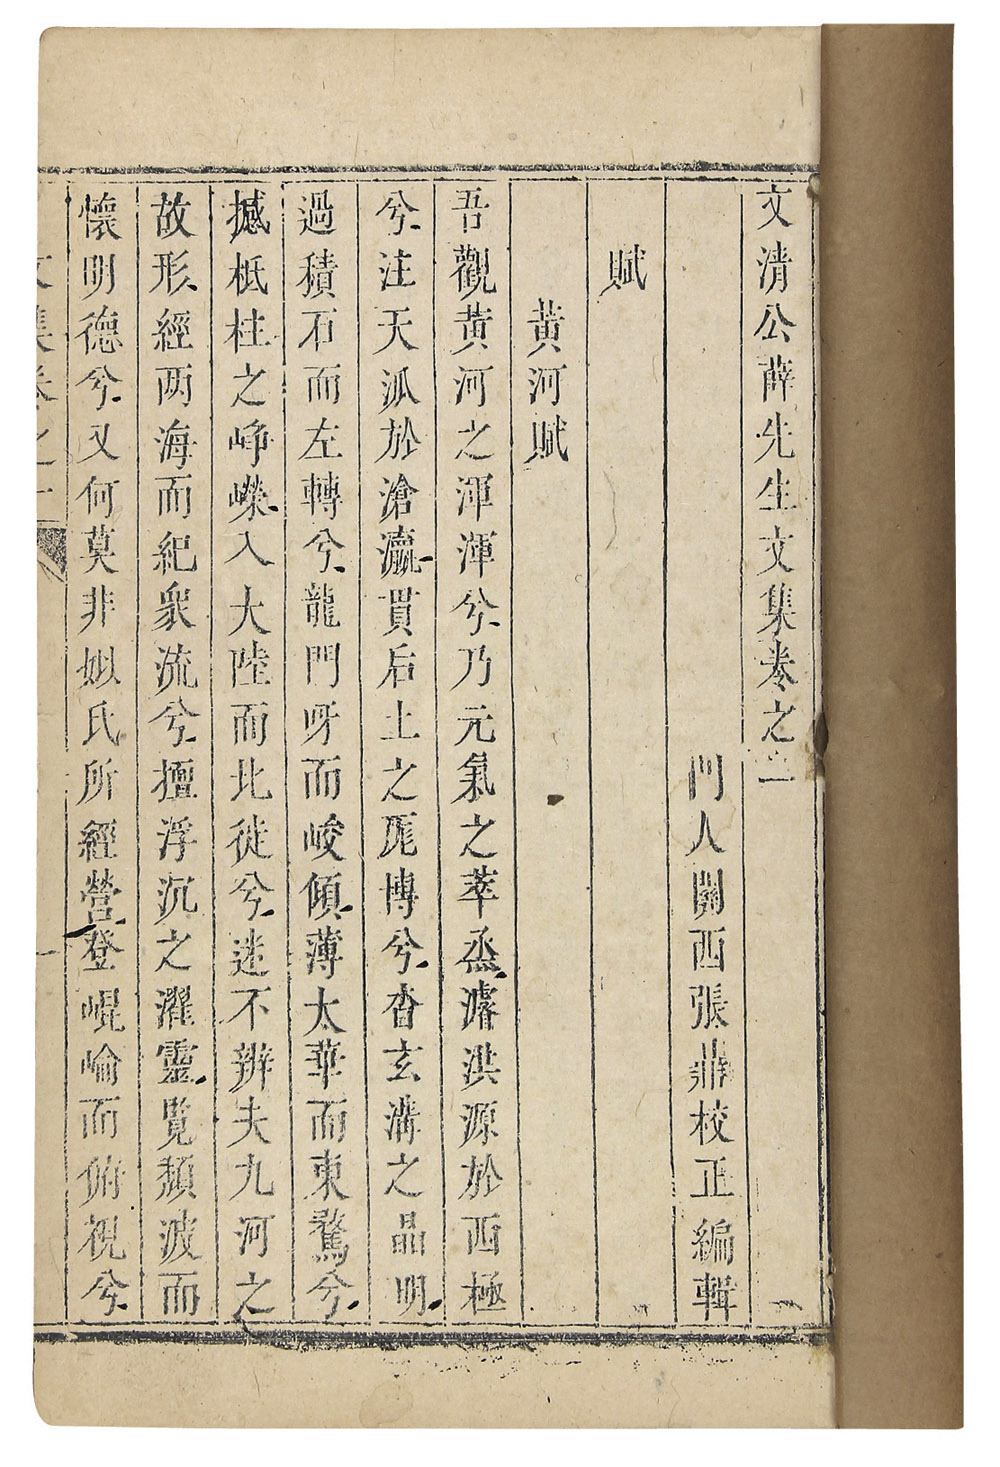 文清公薛先生文集卷之一
門人關西張鼎校正編輯
賦
黃河賦
吾觀黃河之渾渾兮乃元氣之萃烝濬洪源於西極
兮注天派於滄瀛貫后土之庬博兮沓玄溝之晶明
過積石而左轉兮龍門呀而峻傾薄太華而東騖兮
撼柢柱之崢嶸入大陸而北徙兮迷不辨夫九河之
故形經两海而紀衆流兮擅浮沉之濯靈覧頽波而
懷明德兮又何莫非姒氏所經營登崐崘而俯視兮
文集卷之一
一